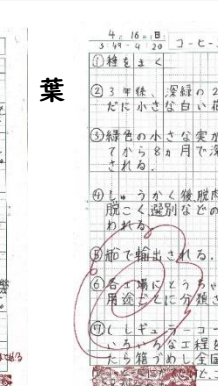 葉
4. 16. 日
3:49 - 4:20
コーヒー
①種をまく
②3年後、深緑の2
だに小さな白い花
③緑色の小さな実が
てから8ヵ月で深
される。
④しゅうかく後、脱肉
脱こく選別などの
われる。
⑤船で輸出される。
⑥各工場にとうちゃ
用途ごとに分類さ
⑦(レギュラーコー
いろいろな工程を
たら箱づめし、全国